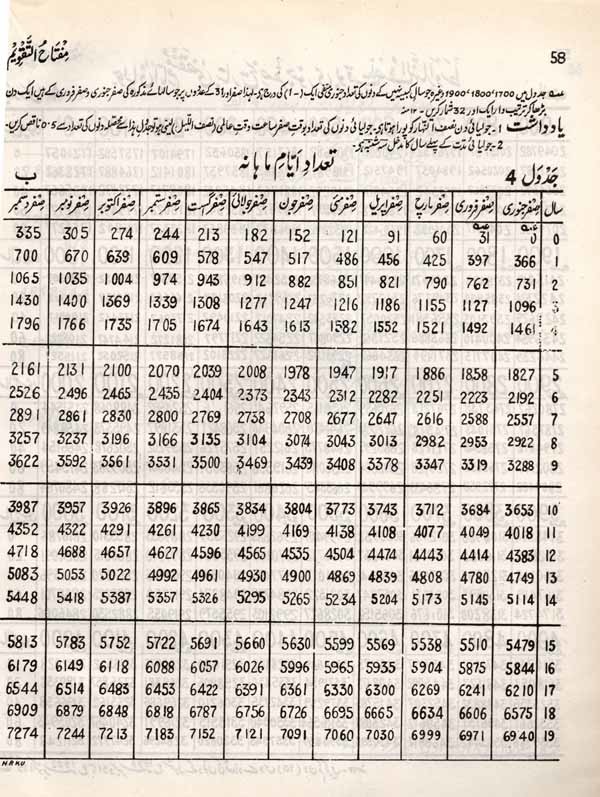 58 مفتاح التقویم
عـہ جدول میں 1700، 1800، 1900 وغیرہ جو سال کبیسہ نہیں کے دنوں کی تعداد جنوری منفی ایک (1-) کی درج ہے۔ لہٰذا صفر اور 31 کے عددوں پر جو سالہائے مذکورہ کی صفر جنوری و صفر فروری کے ہیں ایک دن
بڑھا کر ترتیب وار ایک اور 32 شمار کریں۔ ۱۲ منہ
یادداشت 1- جولیائی دن نصف النہار کو پورا ہوتا ہے۔ جولیائی دنوں کی تعداد بوقت صفر ساعت وقت عالمی (نصف اللیل) یعنی جو تا جدول ہذا سے محصلہ دنوں کی تعداد سے 0.5 ناقص کریں۔
2- جولیائی مدت کے پہلے سال کا مدخل سہ شنبہ ہے۔
جدول 4 تعداد ایام ماہانہ ب
سال صفر جنوری صفر فروری صفر مارچ صفر اپریل صفر مئی صفر جون صفر جولائی صفر اگست صفر ستمبر صفر اکتوبر صفر نومبر صفر دسمبر
عـہ عـہ
0 0 31 60 91 121 152 182 213 244 274 305 335
1 366 397 425 456 486 517 547 578 609 639 670 700
2 731 762 790 821 851 882 912 943 974 1004 1035 1065
3 1096 1127 1155 1186 1216 1247 1277 1308 1339 1369 1400 1430
4 1461 1492 1521 1552 1582 1613 1643 1674 1705 1735 1766 1796
5 1827 1858 1886 1917 1947 1978 2008 2039 2070 2100 2131 2161
6 2192 2223 2251 2282 2312 2343 2373 2404 2435 2465 2496 2526
7 2557 2588 2616 2647 2677 2708 2738 2769 2800 2830 2861 2891
8 2922 2953 2982 3013 3043 3074 3104 3135 3166 3196 3237 3257
9 3288 3319 3347 3378 3408 3439 3469 3500 3531 3561 3592 3622
10 3653 3684 3712 3743 3773 3804 3834 3865 3896 3926 3957 3987
11 4018 4049 4077 4108 4138 4169 4199 4230 4261 4291 4322 4352
12 4383 4414 4443 4474 4504 4535 4565 4596 4627 4657 4688 4718
13 4749 4780 4808 4839 4869 4900 4930 4961 4992 5022 5053 5083
14 5114 5145 5173 5204 5234 5265 5295 5326 5357 5387 5418 5448
15 5479 5510 5538 5569 5599 5630 5660 5691 5722 5752 5783 5813
16 5844 5875 5904 5935 5965 5996 6026 6057 6088 6118 6149 6179
17 6210 6241 6269 6300 6330 6361 6391 6422 6453 6483 6514 6544
18 6575 6606 6634 6665 6695 6726 6756 6787 6818 6848 6879 6909
19 6940 6971 6999 7030 7060 7091 7121 7152 7183 7213 7244 7274
H.R.K.U